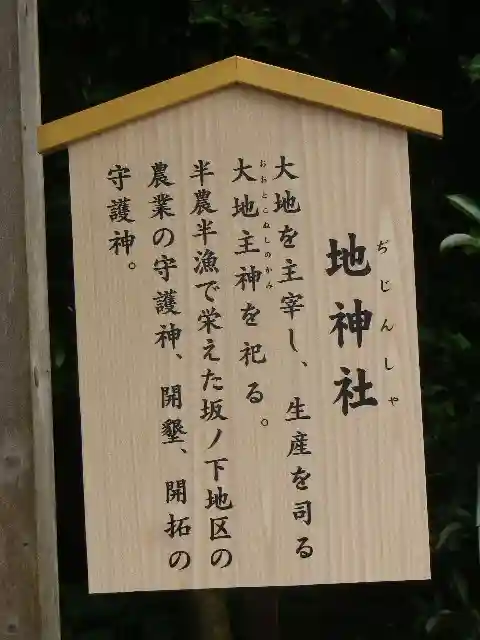 地神社
ぢじんしゃ
大地を主宰し、生産を司る
大地主神を祀る。
おおとこぬしのかみ
半農半漁で栄えた坂ノ下地区の
農業の守護神、開墾、開拓の
守護神。